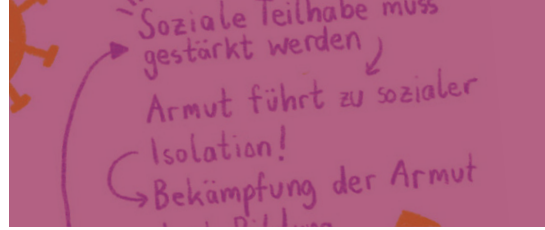 Soziale Teilhabe muss
gestärkt werden
Armut führt zu sozialer
Isolation!
Bekämpfung der Armut
Bildung